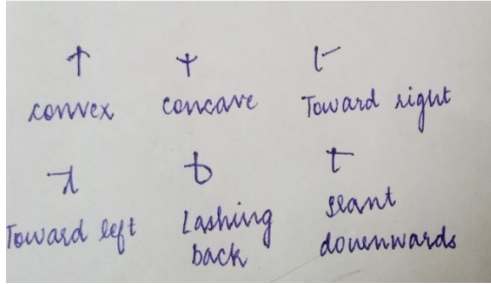 convex concave Toward right
Toward left Lashing back slant downwards